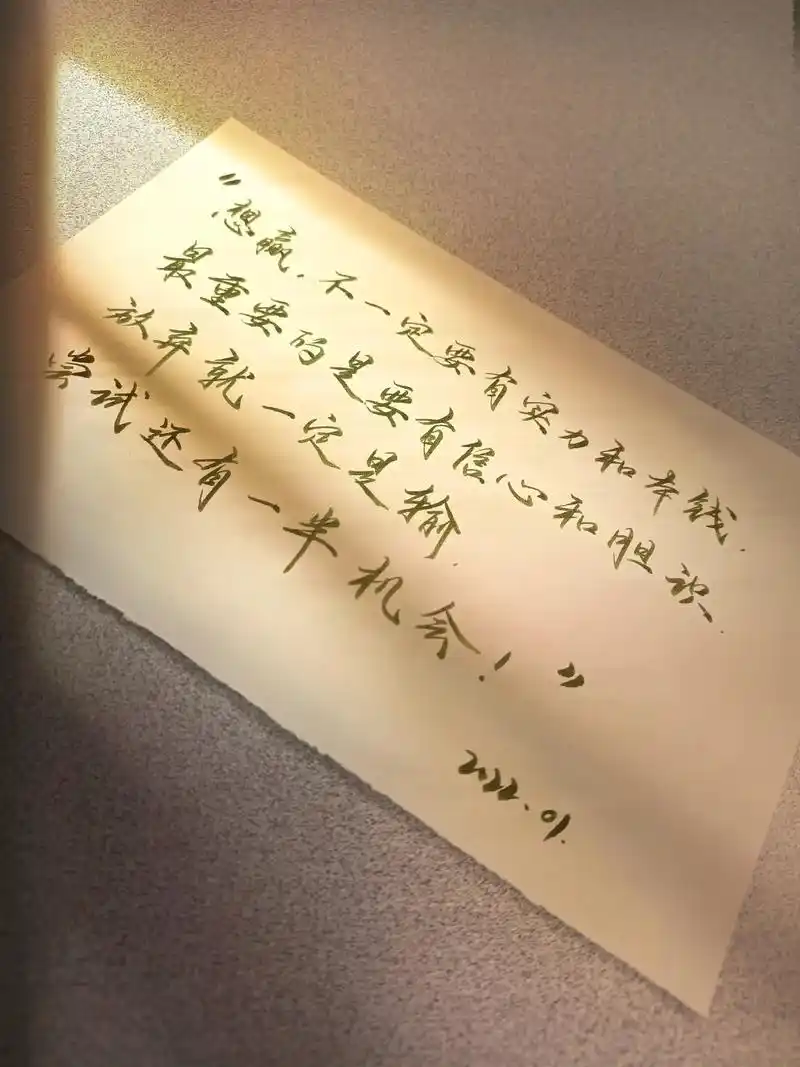 “想赢，不一定要有实力和本钱.
最重要的是要有信心和胆识.
放弃就一定是输.
尝试还有一半机会！”
2022.01.